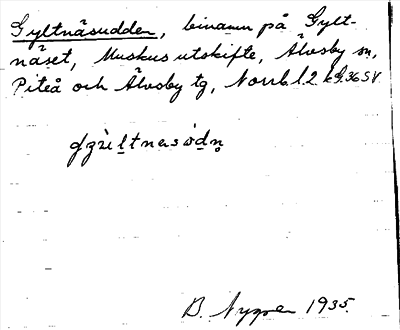 Gyltnäsudden, binamn på Gylt-
näset, Muskus utskifte, Älvsby sn,
Piteå och Älvsby tg, Norrb. l. 2 kg. 36 SV
B. Nygren 1935.